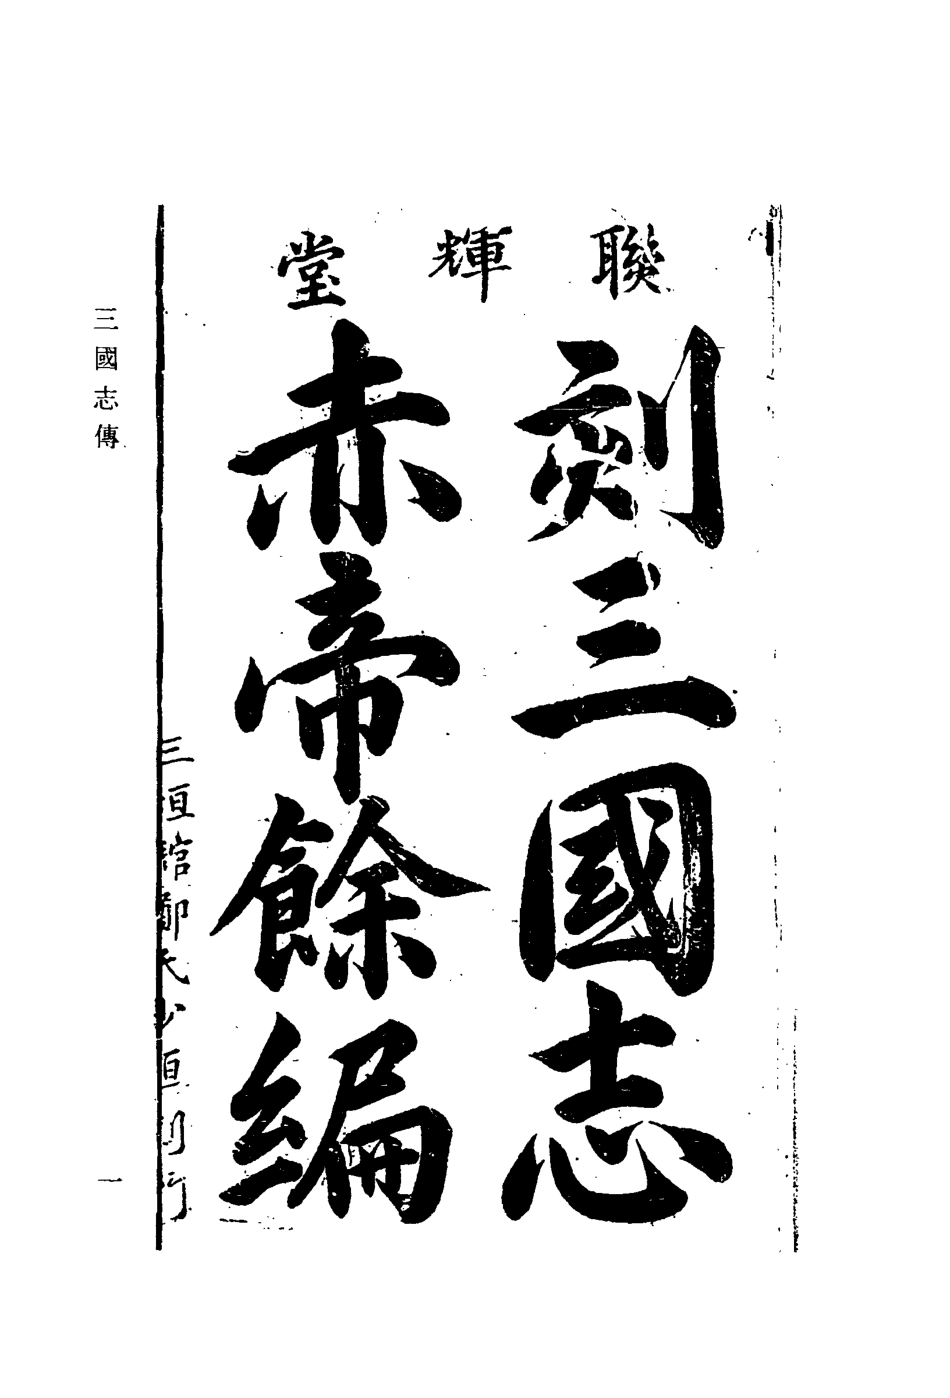 聯輝堂
刻三國志
赤帝餘編
三垣館鄭氏少垣刊行
三國志傳
一